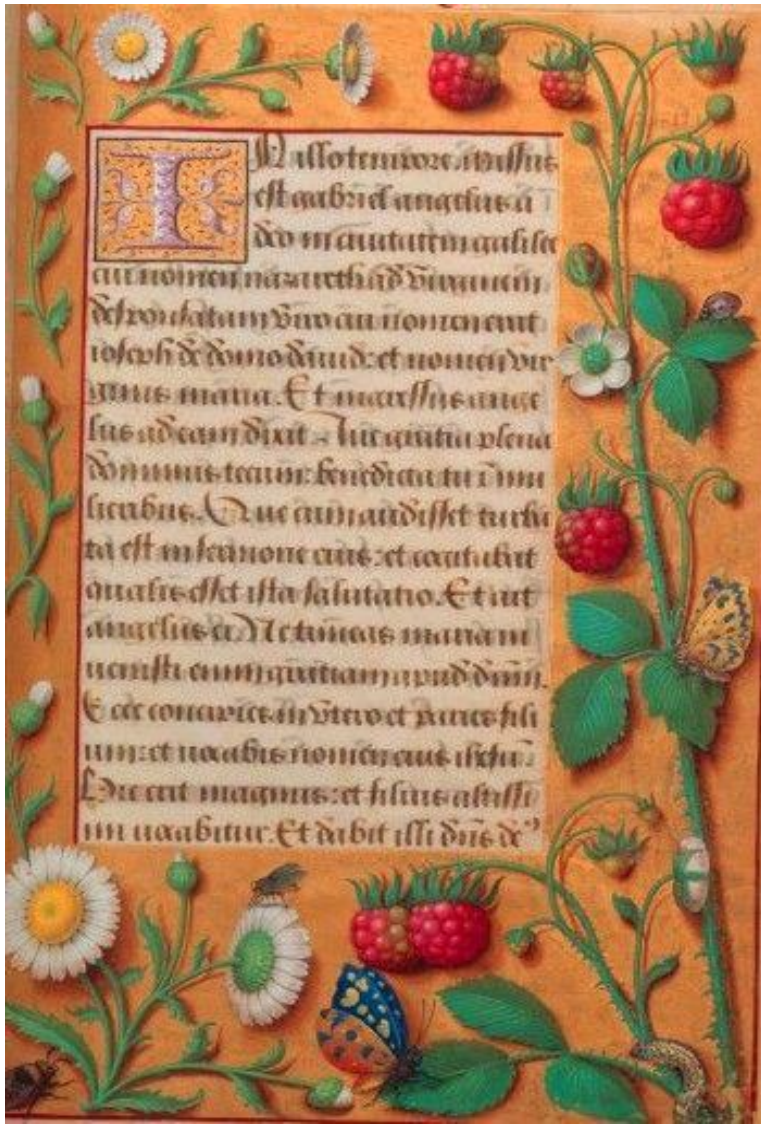 IN illo tempore. missus
est gabriel angelus a
deo in ciuitatem galilee
cui nomen nazareth ad virginem
desponsatam viro cui nomen erat
ioseph de domo dauid: et nomen vir
ginis maria. Et ingressus ange
lus ad eam dixit. Aue gratia plena
dominus tecum: benedicta tu ī mu
lieribus. Que cum audisset turba
ta est in sermone eius: et cogitabat
qualis esset ista salutatio. Et ait
angelus ei. Ne timeas maria in
uenisti enim gratiam apud dūm.
Ecce concipies in vtero et paries fili
um: et uocabis nomen eius
Hic erit magnus: et filius altissi
mi uocabitur. Et dabit illi dn̄s deꝰ